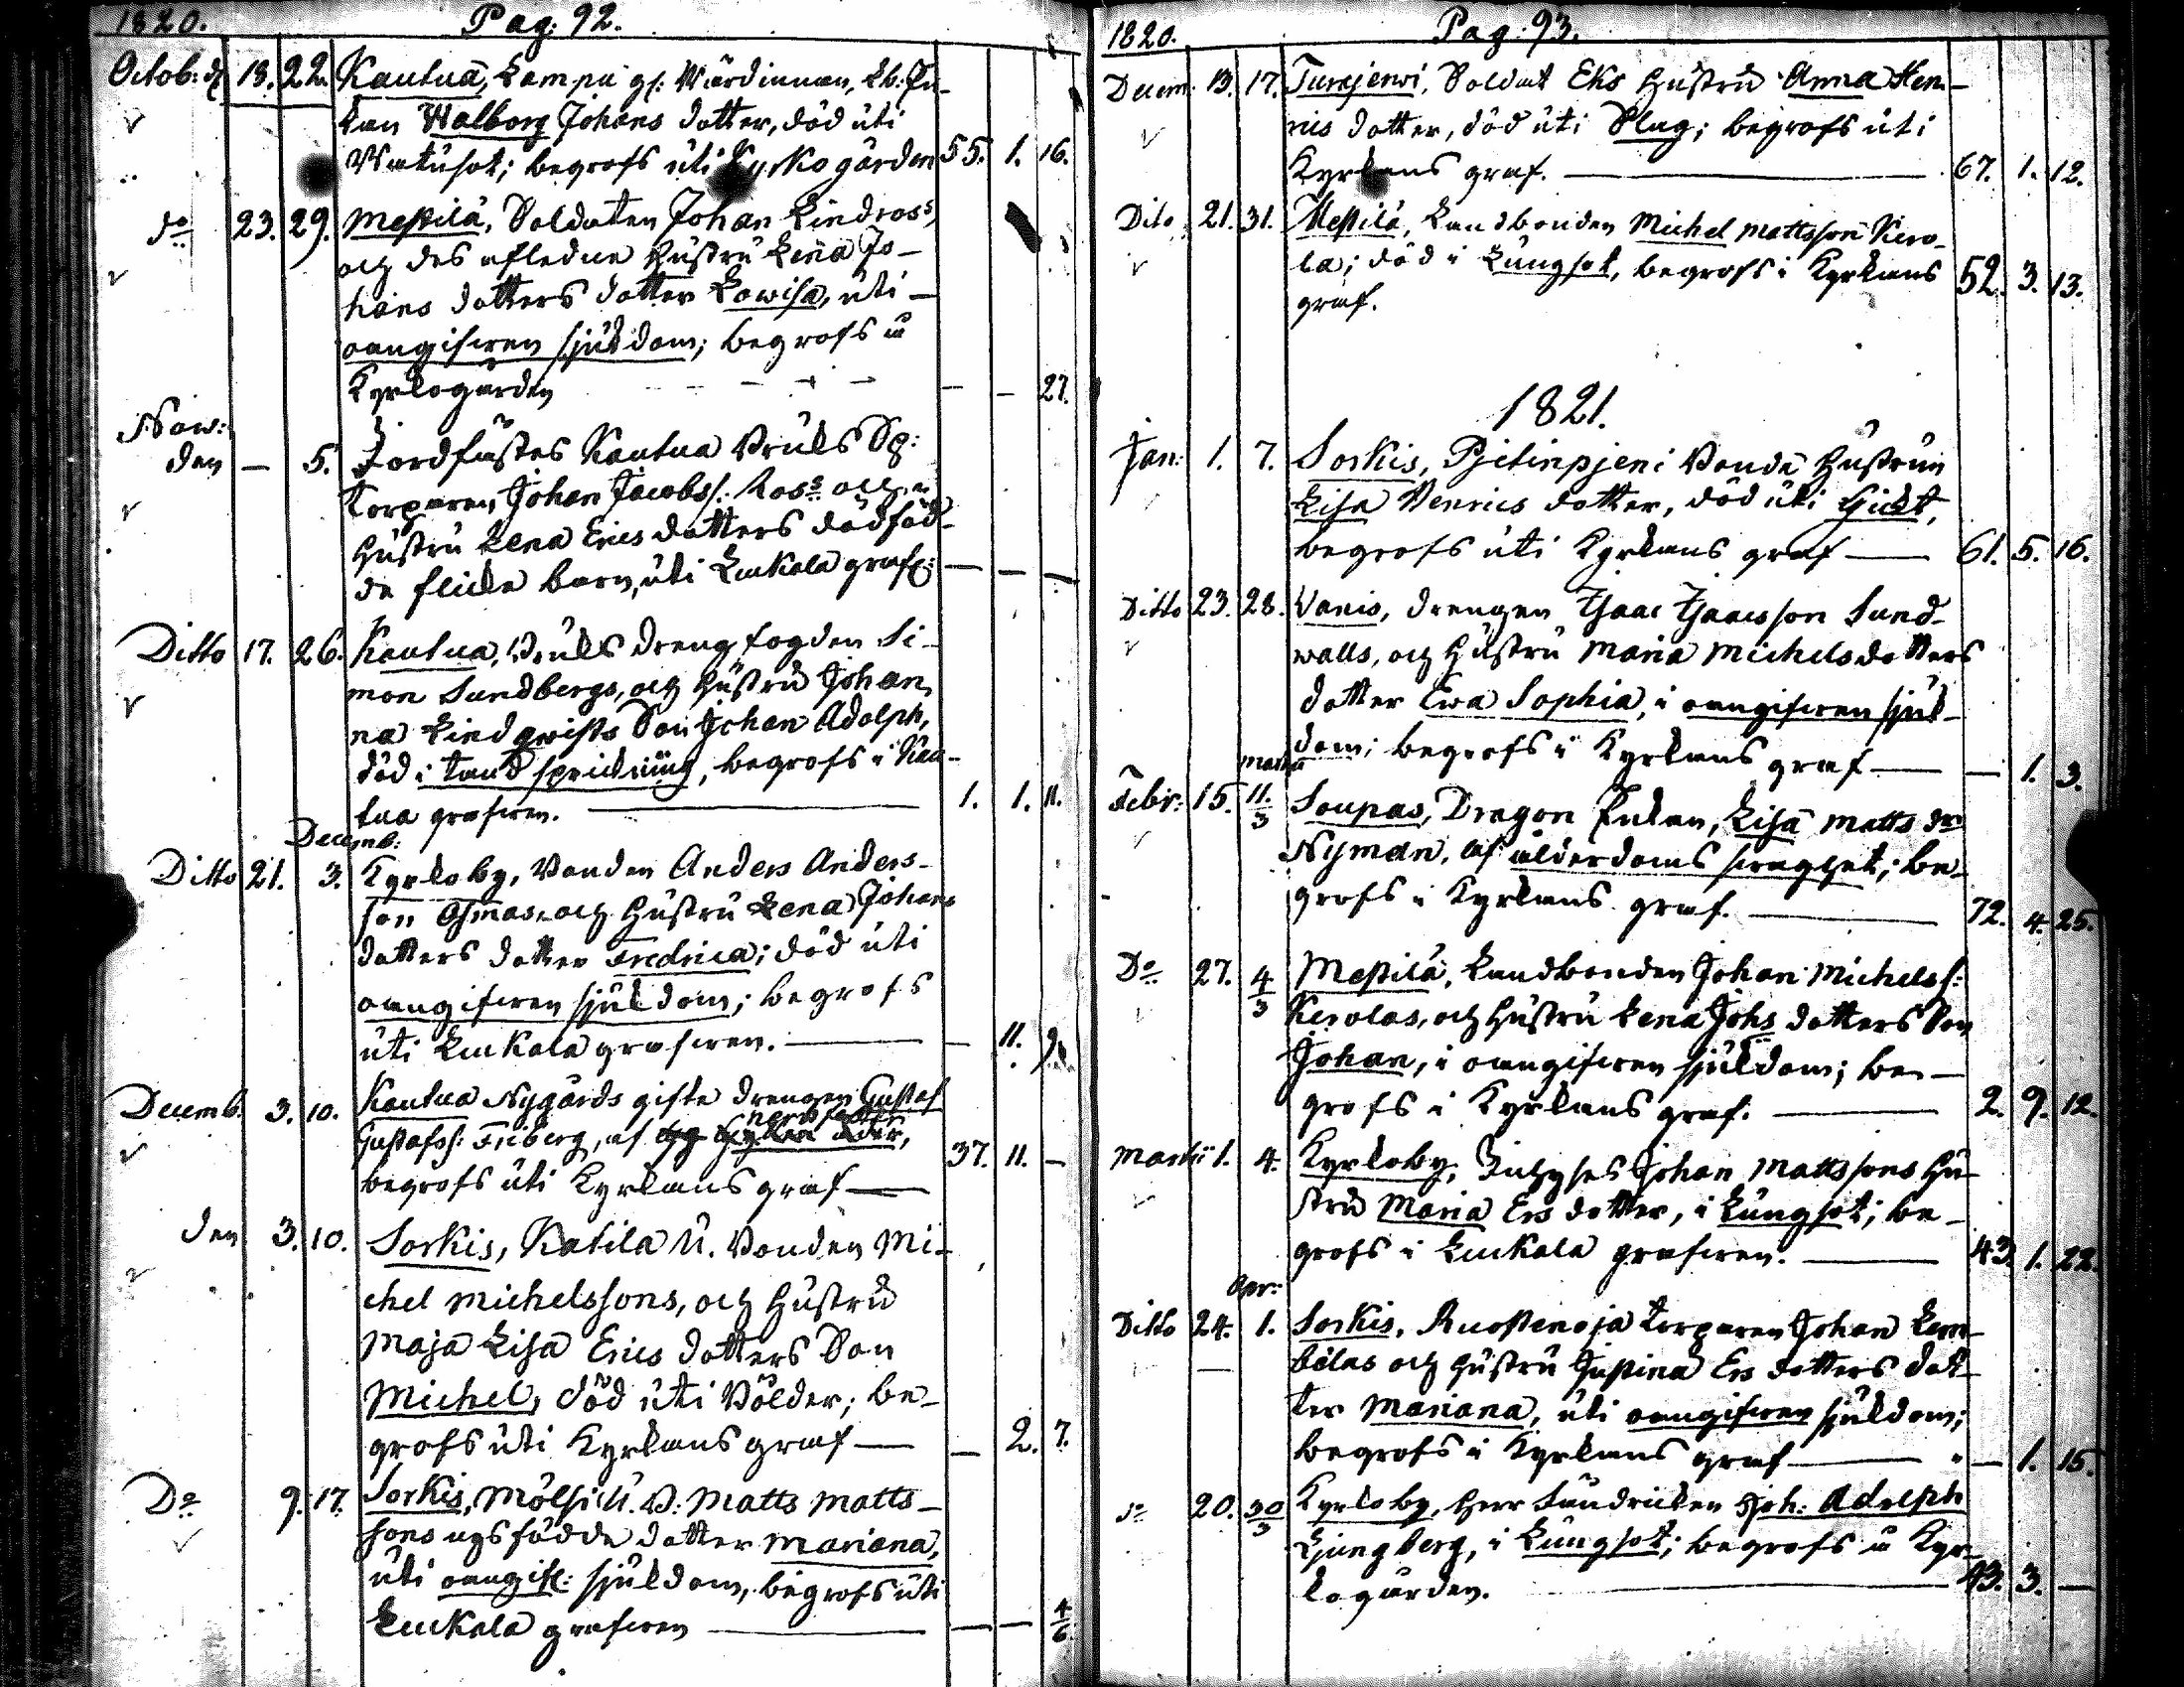 1820. Pag: 92.
Octob: d 18. 22. Kautua, Lampu gl: Wärdinnan, Eb. En-
kan Walborg Johans dotter, död uti
Watusot; begrofs uti Kyrkogården 55. 1. 16.
do 23. 29. Mestilä, Soldaten Johan Lindross,
och des afledne Hustru Lena Jo-
hans dotters dotter Lowisa, uti
oangifwen sjukdom; begrofs å
Kyrkogården — — 27.
Now:
den — 5. Jordfästes Kautua Bruks Sp:
Torparen Johan Jacobss: Ross och
Hustru Lena Erics dotters dödföd-
da flicke barn, uti Luikala graf: — — —
Ditto 17. 26. Kautua, Bruks Drengfogden Si-
mon Sundbergs, och Hustru Johan-
na Lindqwists Son Johan Adolph,
död i tand sprickning, begrofs i Kau-
tua grafwen. 1. 1. 11.
Decemb:
Ditto 21. 3. Kyrkoby, Bonden Anders Anders-
son Osmas, och Hustru Lena Johans
dotters dotter Fredrica; död uti
oangifwen sjukdom; begrofs
uti Luikala grafwen. — 11. 9.
Decemb. 3. 10. Kautua Nygårds gifte drengen Gustaf
Gustafss: Friberg, af nerffeber,
begrofs uti Kyrkans graf 37. 11. —
den 3. 10. Sorkis, Katila U. Bonden Mi-
chel Michelssons, och Hustru
Maja Lisa Erics dotters Son
Michel, död uti Bölder; be-
grofs uti Kyrkans graf — 2. 7.
Do 9. 17. Sorkis, Mölsi U. B: Matts Matts-
sons nysfödde dotter Mariana,
uti oangif: sjukdom, begrofs uti
Luikala grafwen — — 4/6
1820. Pag: 93.
Decem: 13. 17. Turajerwi, Soldat Eks Hustru Anna Hen-
rics dotter, död uti Slag; begrofs uti
Kyrkans graf. 67. 1. 12.
Dito 21. 31. Mestilä, Landbonden Michel Mattsson Kero-
la; död i Lungsot, begrofs i Kyrkans 52. 3. 13.
graf.
1821.
Jan: 1. 7. Sorkis, Pjetinpjeni Bonde Hustrun
Lisa Henrics dotter, död uti Gickt,
begrofs uti Kyrkans graf 61. 5. 16.
Ditto 23. 28. Vanis, drengen Isaac Isaacsson Sund-
walls, och Hustru Maria Michelsdotters
dotter Ewa Sophia, i oangifwen sjuk-
dom; begrofs i Kyrkans graf — 1. 3.
Martii
Febr: 15. 11/3 Soupas, Dragon Enkan, Lisa Matts dr
Nyman, af ålderdoms swaghet; be-
grofs i Kyrkans graf. 72. 4. 25.
Do 27. 4/3 Mestilä, Landbonden Johan Michelss:
Kerolas, och Hustru Lena Johs dotters Son
Johan, i oangifwen sjukdom; be-
grofs i Kyrkans graf. 2. 9. 12.
Martii 1. 4. Kyrkoby, Inhyses Johan Mattssons Hu-
stru Maria Ers dotter, i Lungsot; be-
grofs i Luikala grafwen. 43. 1. 22.
Apr:
Ditto 24. 1. Sorkis, Ruostenoja Torparen Johan Lem-
bölas och Hustru Justina Ers dotters dot-
ter Mariana, uti oangifwen sjukdom;
begrofs i Kyrkans graf — 1. 15.
do 20. 30/3 Kyrkoby, Herr Fändricken Joh: Adolph
Ljungberg, i Lungsot; begrofs å Kyr-
kogården. 43. 3. —